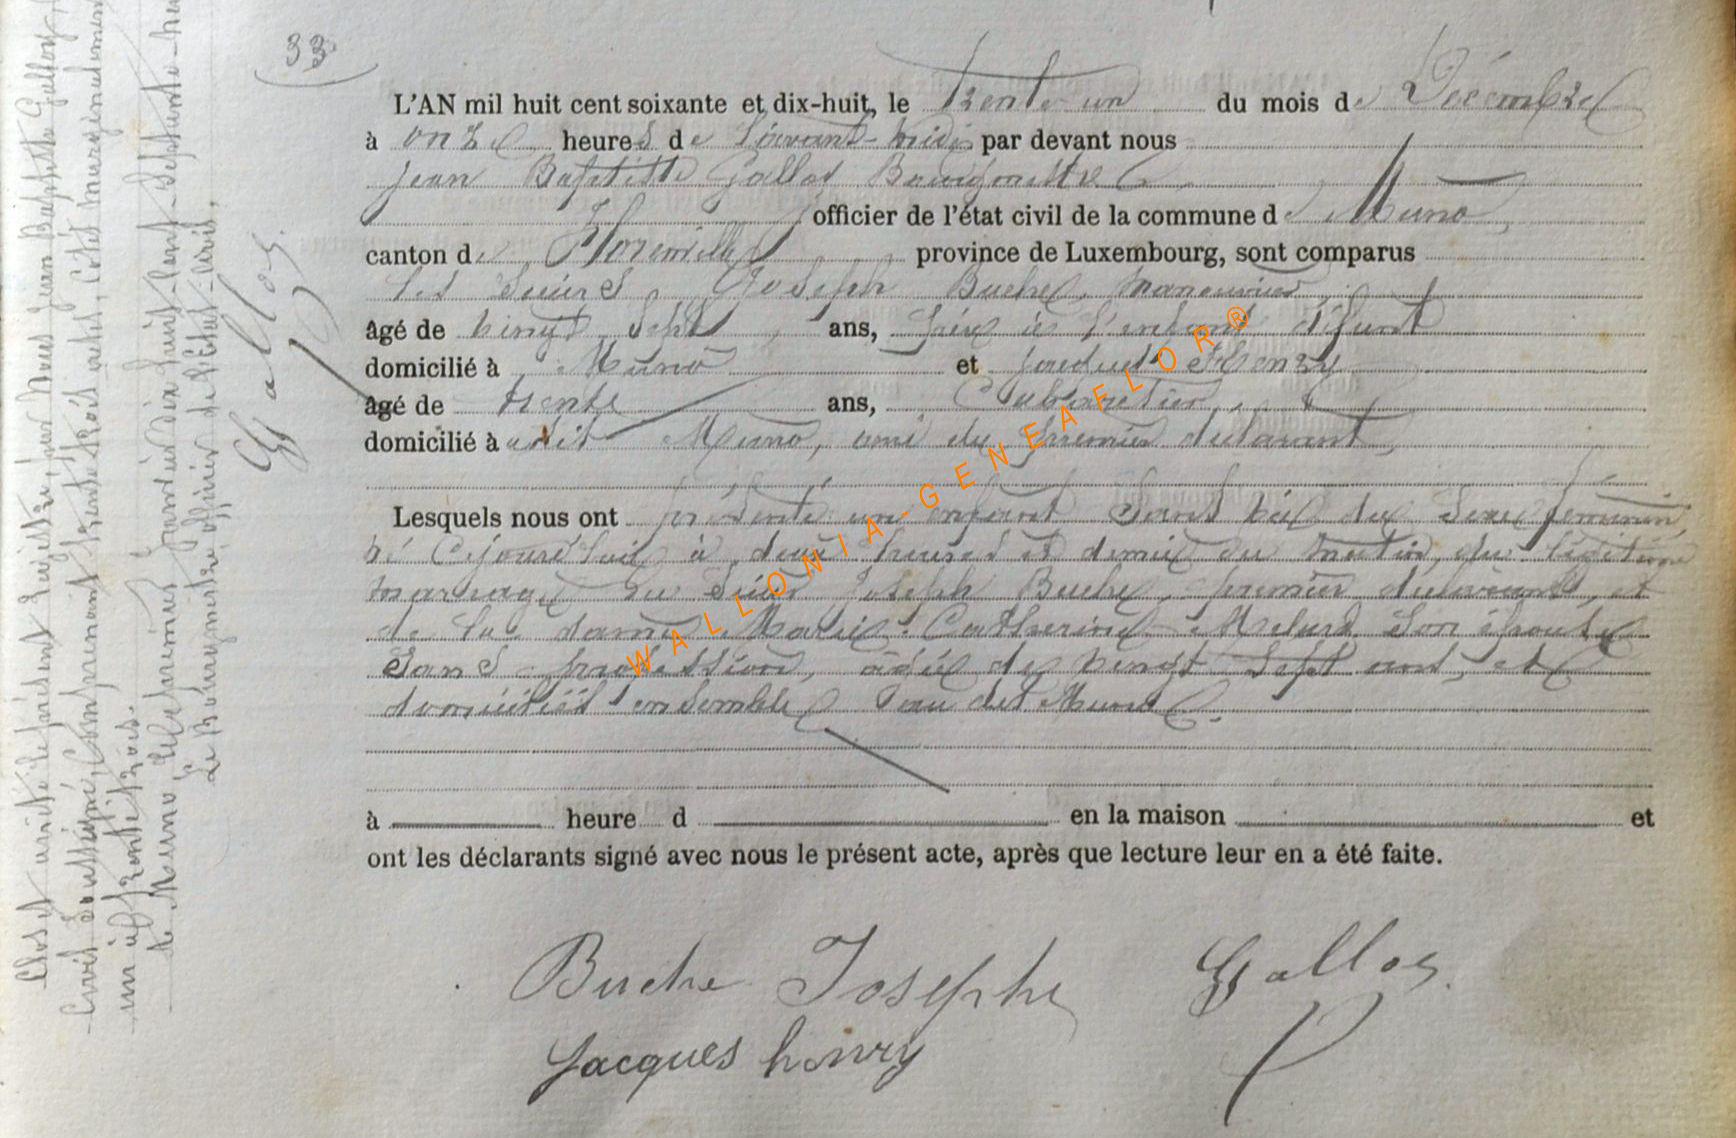 33
L'AN mil huit cent soixante et dix-huit, le trente un du mois de Décembre
à onze heures de l'avant-midi par devant nous
Jean Baptiste Gallos Bourgmestre
officier de l'état civil de la commune de Muno
canton de Florenville province de Luxembourg, sont comparus
les sieurs Joseph Buche, manouvrier,
âgé de vingt sept ans, père à l'enfant défunt
domicilié à Muno et Jacques Henry
âgé de trente ans, Cabaretier
domicilié à udit Muno, ami du premier déclarant
Lesquels nous ont présenté un enfant sans vie du sexe féminin,
né cejourd'huit à deux heures et demie du matin, du légitime
mariage du sieur Joseph Buche, premier déclarant, et
de la dame Marie Catherine son épouse
sans profession, âgée de vingt sept ans, et
domiciliés ensemble au dit Muno.
à heure d en la maison et
ont les déclarants signé avec nous le présent acte, après que lecture leur en a été faite.
Buche Josephe Gallos
Jacques henry
Clos et arrêté le présent registre, par Nous Jean Baptiste Gallos
Civil soussigné, comprenant trente trois actes, cotés marginalement
un à trente trois.
à Muno le premier Janvier dix huit cent septante-neuf
Le Bourgmestre, officier de l'état-civil,
Gallos.
WALLONIA-GENEAFLOR®